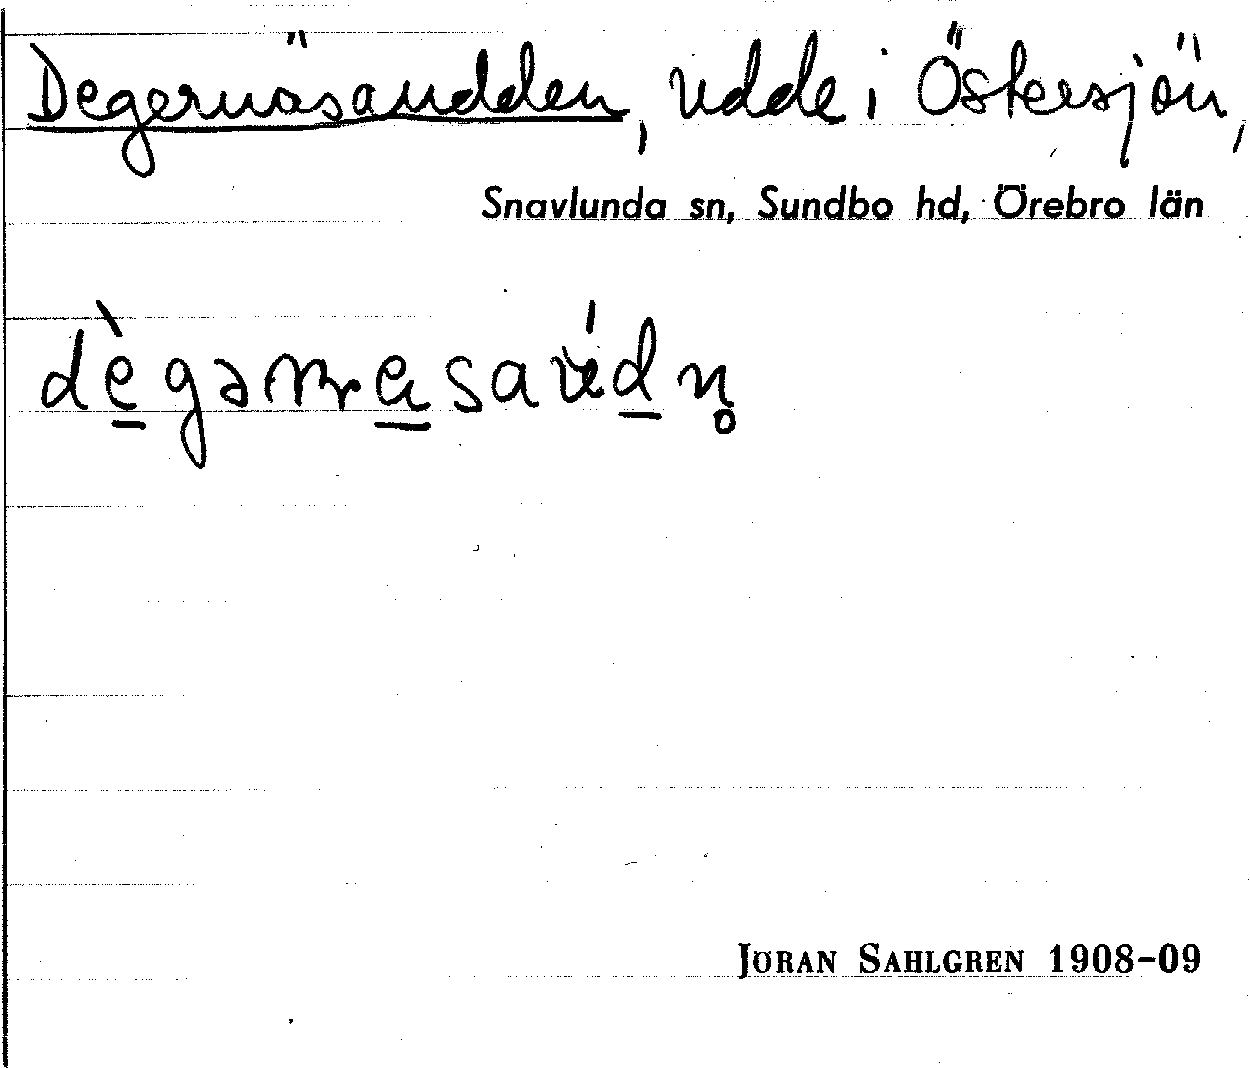 Degernäsaudden, udde i Östersjön,
Snavlunda sn, Sundbo hd, Örebro län
JÖRAN SAHLGREN 1908-09